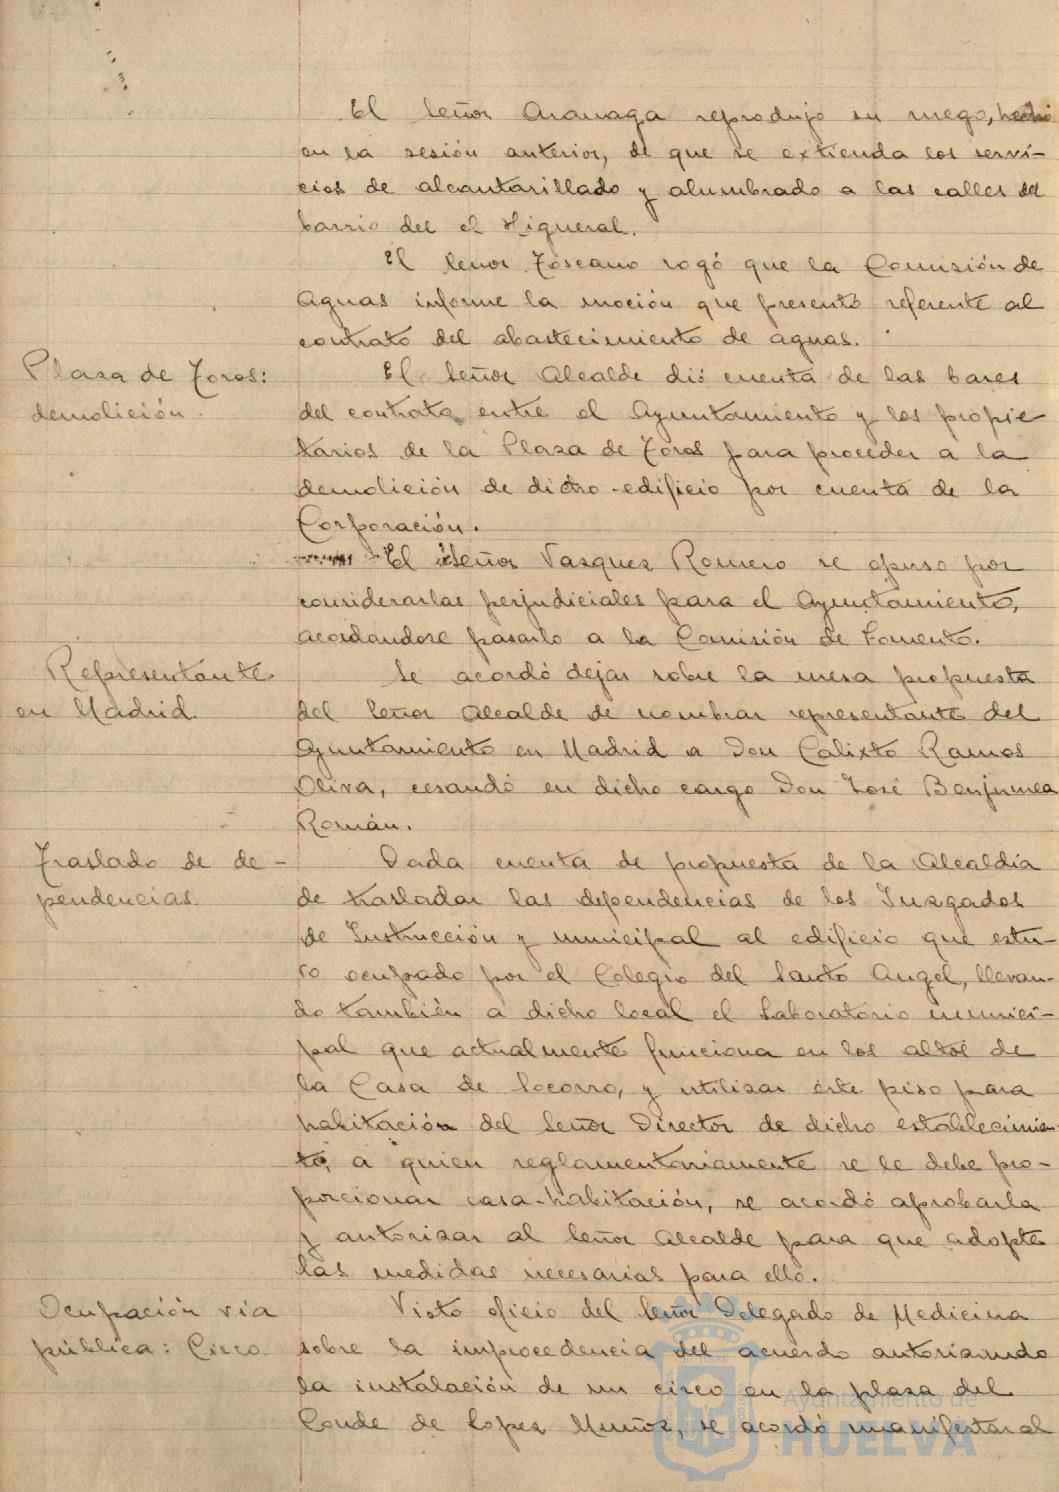 El Señor Aranaga reprodujo su ruego, hecho
en la sesión anterior, de que se extienda los servi-
cios de alcantarillado y alumbrado a las calles del
barrio del el Higueral.
El Señor Toscano rogó que la Comisión de
Aguas informe la moción que presentó referente al
contrato del abastecimiento de aguas.
Plaza de Toros:
demolición.
El Señor Alcalde dió cuenta de las bases
del contrato entre el Ayuntamiento y los propie
tarios de la Plaza de Toros para proceder a la
demolición de dicho edificio por cuenta de la
Corporación.
El Señor Vazquez Romero se opuso por
considerarlas perjudiciales para el Ayuntamiento,
acordandose pasarlo a la Comisión de Fomento.
Representante
en Madrid.
Se acordó dejar sobre la mesa propuesta
del Señor Alcalde de nombrar representante del
Ayuntamiento en Madrid a Don Calixto Ramos
Oliva, cesando en dicho cargo Don José Benjumea
Román.
Traslado de de-
pendencias.
Dada cuenta de propuesta de la Alcaldía
de trasladar las dependencias de los Juzgados
de Instrucción y municipal al edificio que estu-
vo ocupado por el Colegio del Santo Angel, llevan-
do también a dicho local el Laboratorio munici-
pal que actualmente funciona en los altos de
la Casa de Socorro, y utilizar éste piso para
habitación del Señor Director de dicho establecimien-
to, a quien reglamentariamente se le debe pro-
porcionar casa-habitación, se acordó aprobarla
y autorizar al Señor Alcalde para que adopte
las medidas necesarias para ello.
Ocupación vía
pública: Circo
Visto oficio del Señor Delegado de Medicina
sobre la improcedencia del acuerdo autorizando
la instalación de un circo en la plaza del
Conde de Lopez Muñoz, se acordó manifestar al
Ayuntamiento de
HUELVA